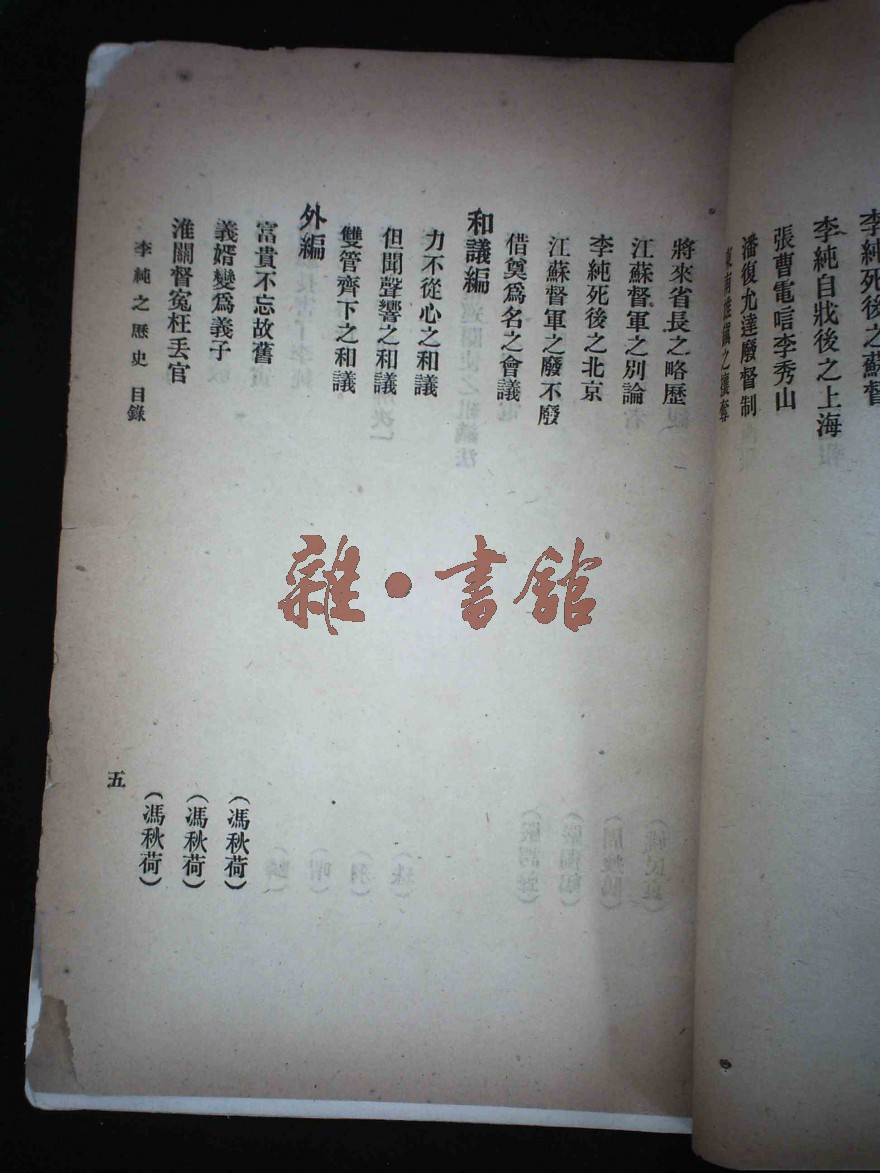 李純死後之蘇督
李純自戕後之上海
張曹電唁李秀山
潘復允達廢督制
將來省長之略歷
江蘇督軍之別論
李純死後之北京
江蘇督軍之廢不廢
借奠爲名之會議
和議編
力不從心之和議
但聞聲響之和議
雙管齊下之和議
外編
富貴不忘故舊
（馮秋荷）
義婿變爲義子
（馮秋荷）
淮關督冤枉丟官
（馮秋荷）
李純之歷史 目錄
五
雜·書館